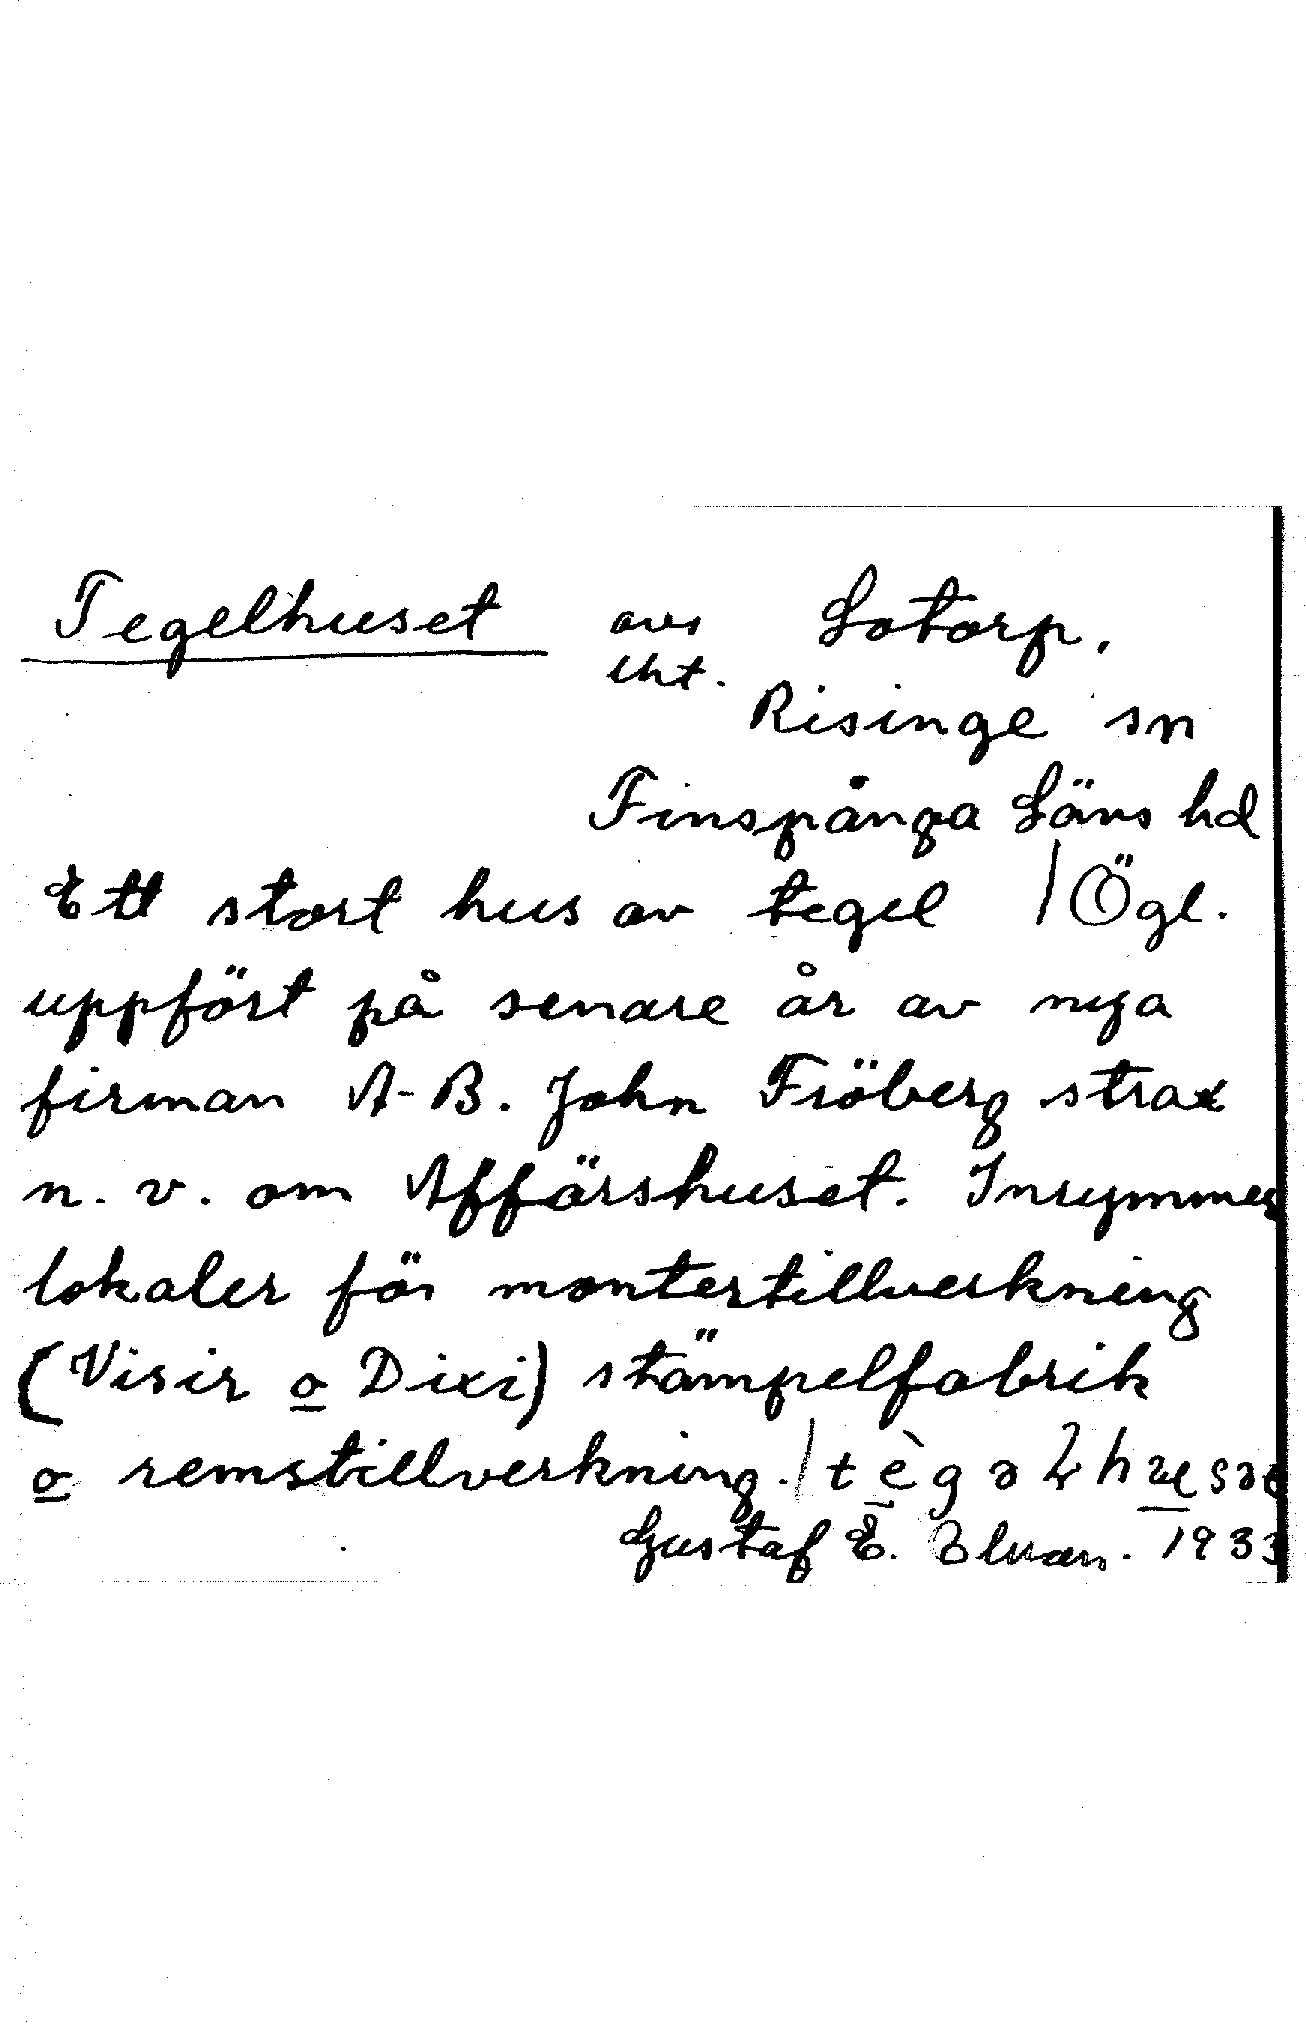 Tegelhuset avs Lotorp,
lht. Risinge sn
Finspånga Läns hd
Ett stort hus av tegel / Ögl.
uppfört på senare år av nya
firman A-B. John Fröberg strax
n. v. om Affärshuset. Inrymmer
lokaler för montertillverkning
(Visir o Dixi) stämpelfabrik
o remstillverkning. /
Gustaf E. 193